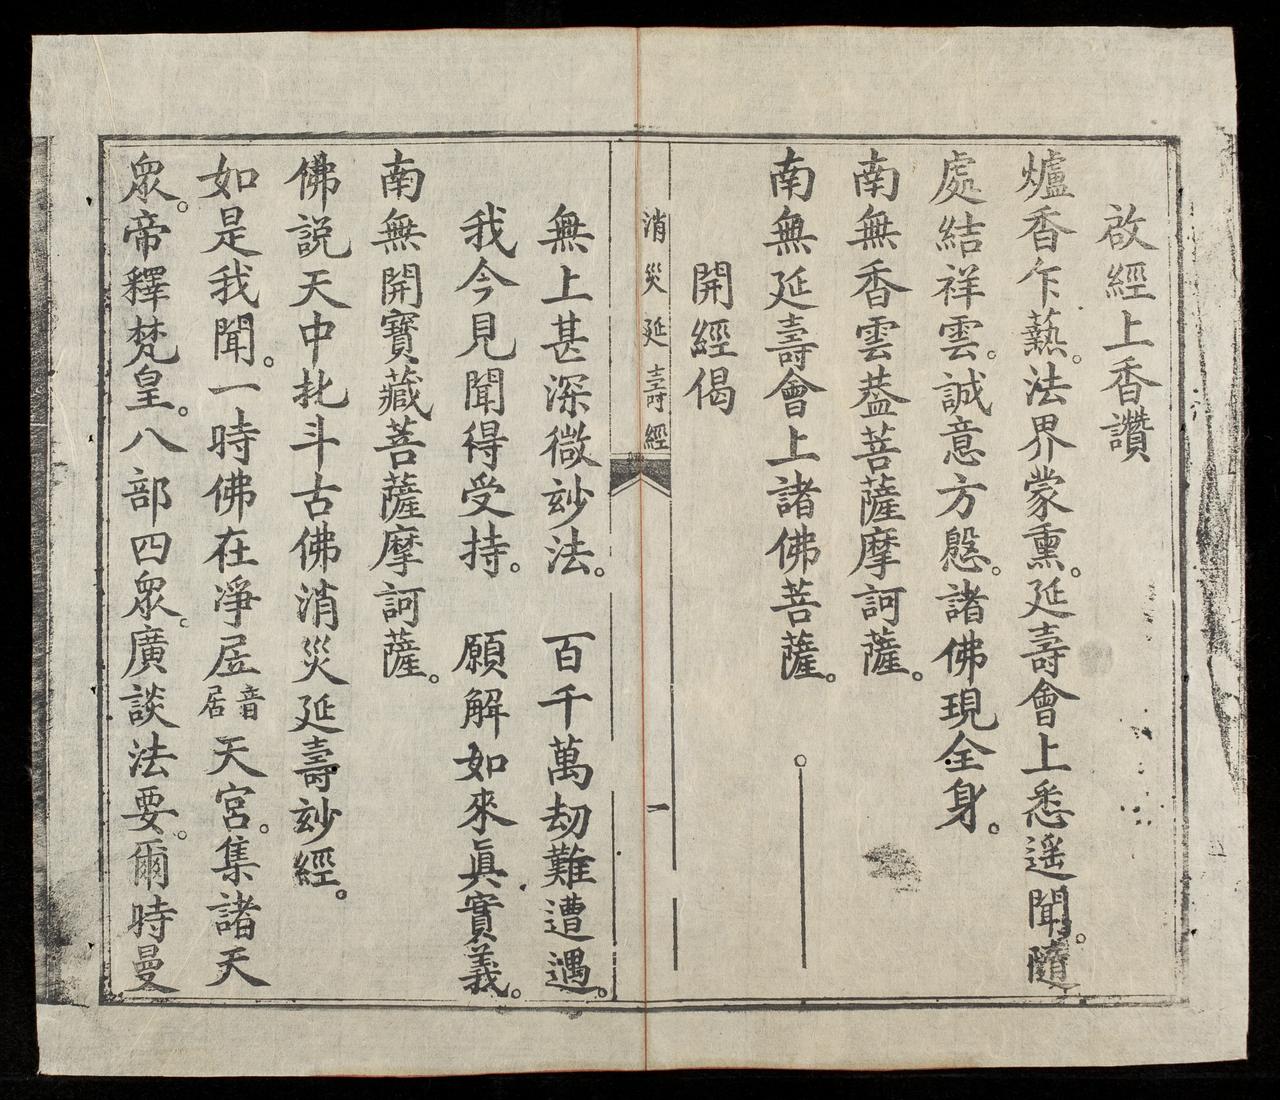 啟經上香讚
爐香乍爇。法界蒙熏。延壽會上悉遥聞。隨
處結祥雲。誠意方慇。諸佛現全身。
南無香雲葢菩薩摩訶薩。
南無延壽會上諸佛菩薩。
開經偈
消災延壽經 一
無上甚深微玅法。 百千萬劫難遭遇。
我今見聞得受持。 願解如來眞實義。
南無開寶藏菩薩摩訶薩。
佛説天中北斗古佛消災延壽玅經。
如是我聞。一時佛在淨凥音居天宮。集諸天
眾。帝釋梵皇。八部四眾。廣談法要。爾時曼